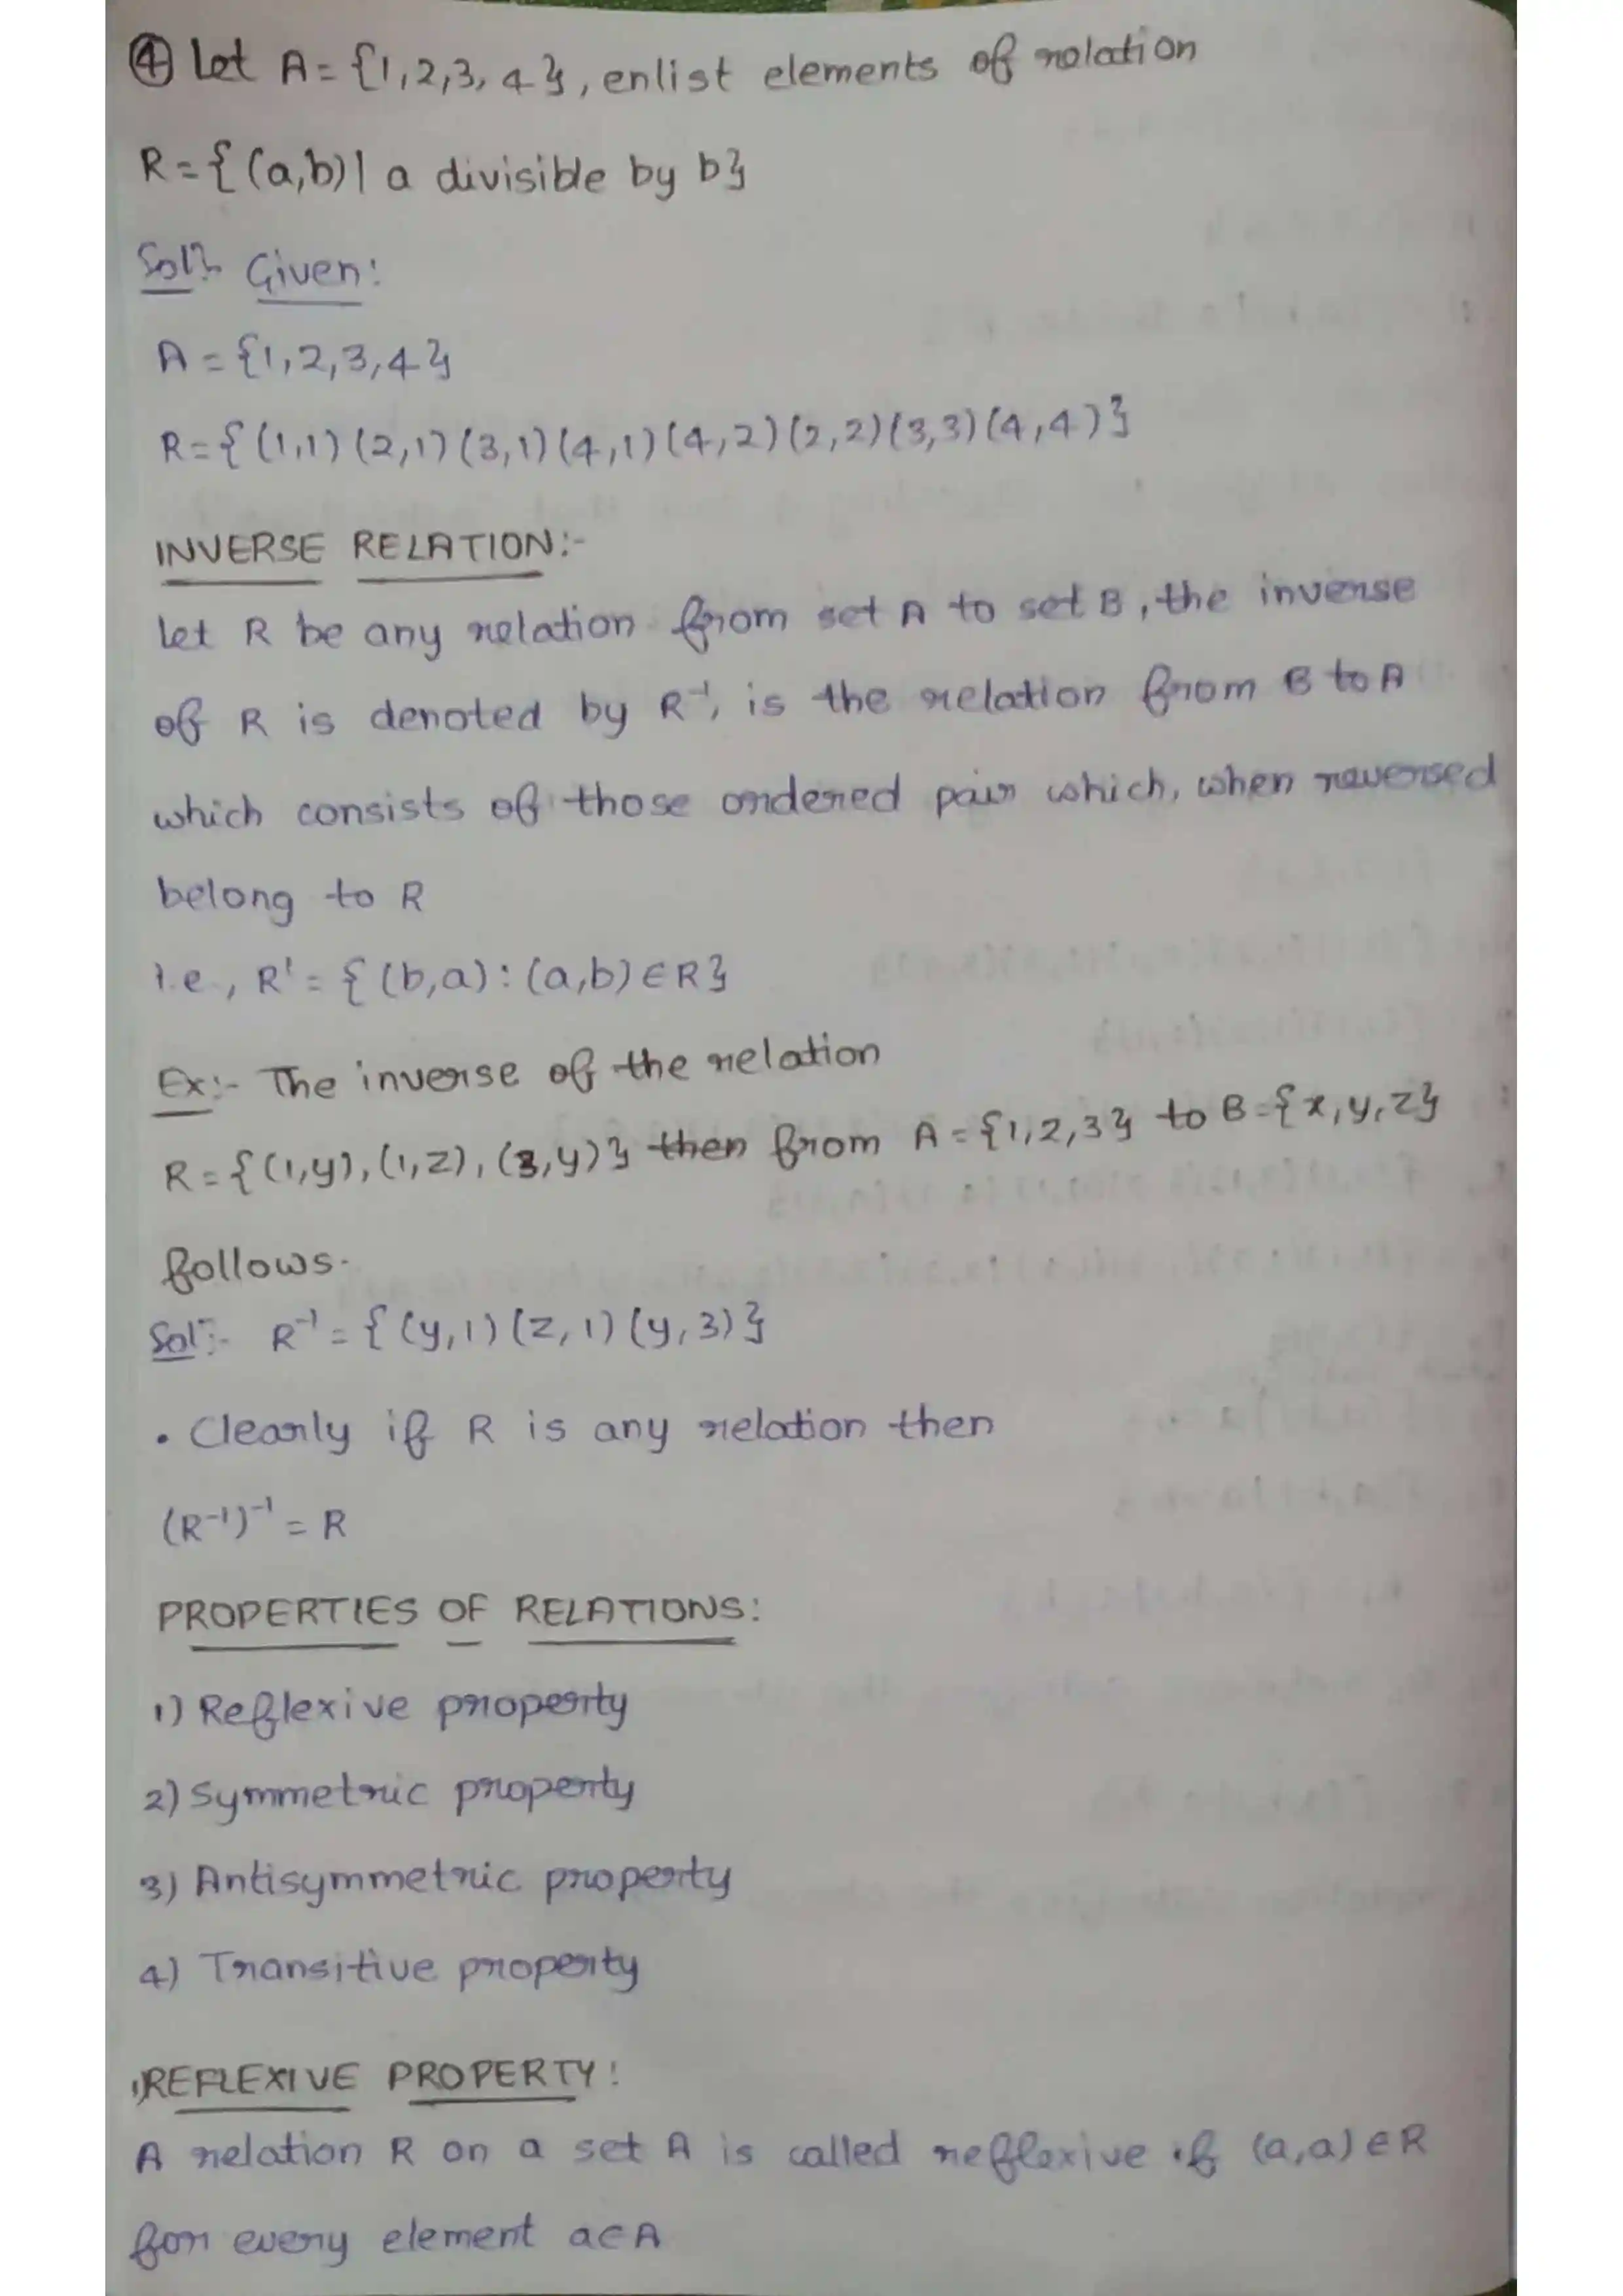 ④ Let A = {1,2,3,4}, enlist elements of relation
R = {(a,b) | a divisible by b}
Solⁿ:- Given:
A = {1,2,3,4}
R = {(1,1) (2,1) (3,1) (4,1) (4,2) (2,2) (3,3) (4,4)}
INVERSE RELATION:-
Let R be any relation from set A to set B, the inverse
of R is denoted by R⁻¹, is the relation from B to A
which consists of those ordered pair which, when reversed
belong to R
i.e., R¹ = {(b,a) : (a,b) ∈ R}
Ex:- The inverse of the relation
R = {(1,y), (1,z), (3,y)} then from A = {1,2,3} to B = {x,y,z}
follows.
Solⁿ:- R⁻¹ = {(y,1) (z,1) (y,3)}
• Clearly if R is any relation then
(R⁻¹)⁻¹ = R
PROPERTIES OF RELATIONS:
1) Reflexive property
2) Symmetric property
3) Antisymmetric property
4) Transitive property
1) REFLEXIVE PROPERTY:
A relation R on a set A is called reflexive if (a,a) ∈ R
for every element a∈A